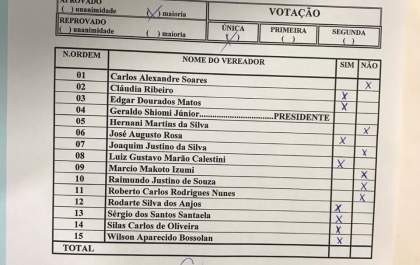 APROVADO
( ) unanimidade (X) maioria
VOTAÇÃO
REPROVADO
( ) unanimidade ( ) maioria
ÚNICA PRIMEIRA SEGUNDA
(X) ( ) ( )
N.ORDEM NOME DO VEREADOR SIM NÃO
01 Carlos Alexandre Soares X
02 Cláudia Ribeiro X
03 Edgar Dourados Matos X
04 Geraldo Shiomi Júnior..............................PRESIDENTE
05 Hernani Martins da Silva X
06 José Augusto Rosa X
07 Joaquim Justino da Silva X
08 Luiz Gustavo Marão Calestini X
09 Marcio Makoto Izumi X
10 Raimundo Justino de Souza X
11 Roberto Carlos Rodrigues Nunes X
12 Rodarte Silva dos Anjos X
13 Sérgio dos Santos Santaela X
14 Silas Carlos de Oliveira X
15 Wilson Aparecido Bossolan X
TOTAL